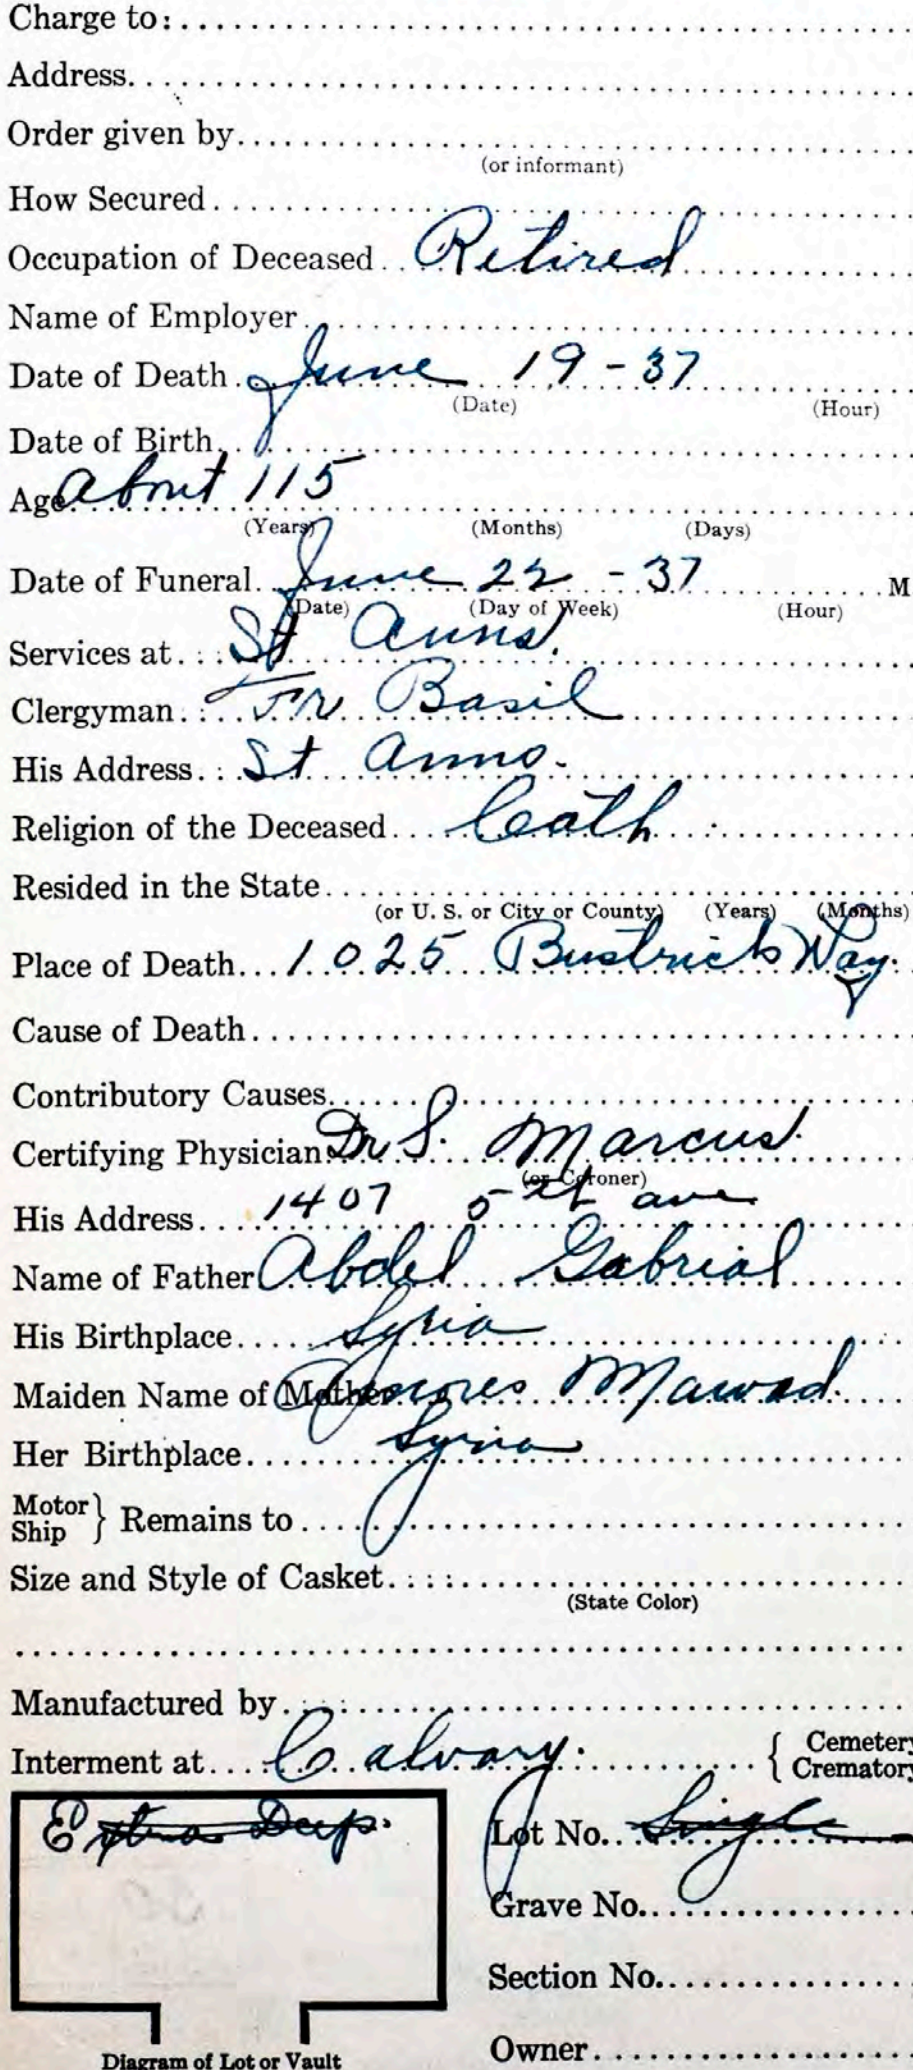 Charge to:
Address
Order given by
(or informant)
How Secured
Occupation of Deceased Retired
Name of Employer
Date of Death June 19 - 37
(Date) (Hour)
Date of Birth
Age about 115
(Years) (Months) (Days)
Date of Funeral June 22 - 37 M
(Date) (Day of Week) (Hour)
Services at St Anns.
Clergyman Fr Basil
His Address St Anns.
Religion of the Deceased Cath
Resided in the State
(or U. S. or City or County) (Years) (Months)
Place of Death 1025 Bustrick Way.
Cause of Death
Contributory Causes
Certifying Physician Dr S. Marcus
(or Coroner)
His Address 1407 5th ave
Name of Father Abdel Gabrial
His Birthplace Syria
Maiden Name of Mother Mawad.
Her Birthplace Syria
Motor
Ship } Remains to
Size and Style of Casket
(State Color)
Manufactured by
Interment at Calvary. { Cemetery
Crematory
Extra Deep.
Lot No. Single
Grave No.
Section No.
Owner
Diagram of Lot or Vault